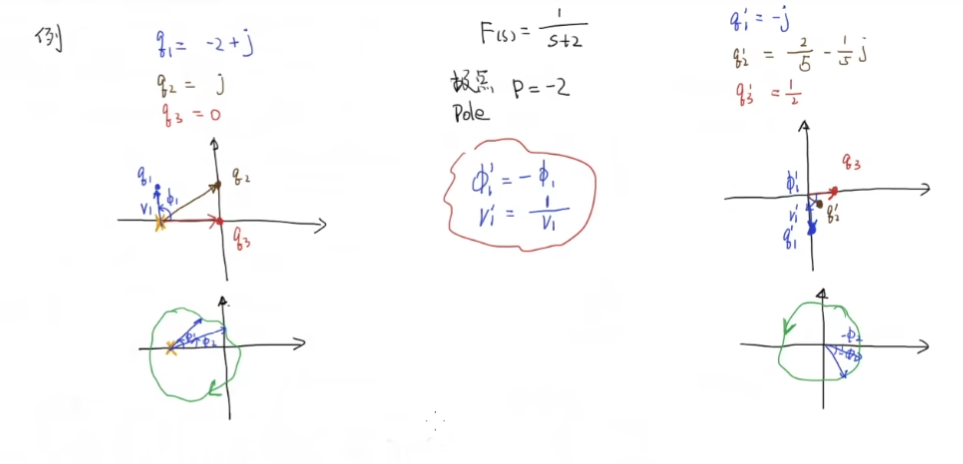 例
q₁ = -2+j
q₂ = j
q₃ = 0
q₁
ϕ₁
v₁
q₂
q₃
ϕ₂
F(s) = 1/(s+2)
极点 P = -2
Pole
ϕ₁' = -ϕ₁
v₁' = 1/v₁
q₁' = -j
q₂' = 2/5 - 1/5 j
q₃' = 1/2
q₃
ϕ₁'
v₁'
q₂'
q₁'
-ϕ₂